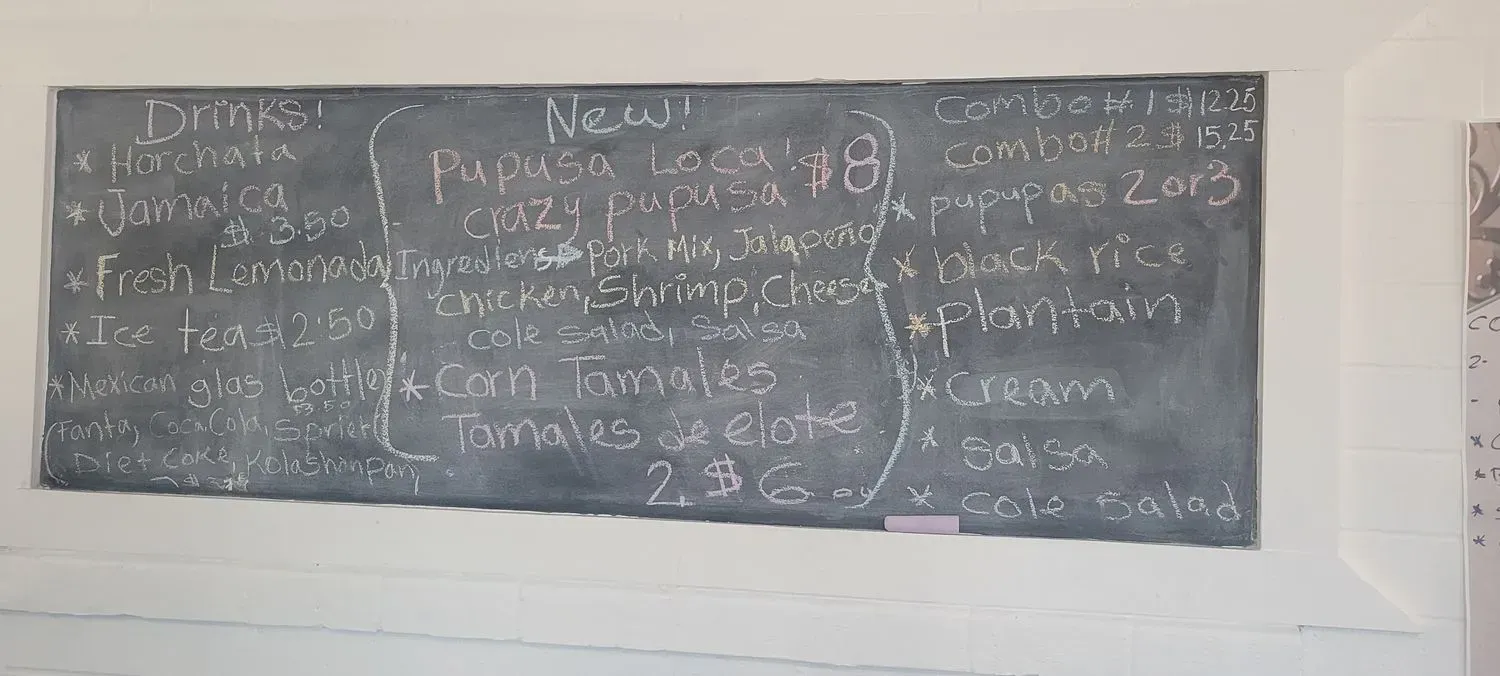 Drinks!
* Horchata
* Jamaica
$ 3.50
* Fresh Lemonada
* Ice tea $2.50
* Mexican glas bottle
$3.50
(Fanta, Coca Cola, Spriet
Diet Coke, Kolashanpan,
New!
Pupusa Loca! $8
crazy pupusa
Ingrediens Pork Mix, Jalapeño
chicken, Shrimp, Cheese
cole salad, Salsa
* Corn Tamales
Tamales de elote
2. $6.
Combo # 1 $ 12.25
Combo # 2 $ 15.25
* pupupas 2 or 3
* black rice
* plantain
* Cream
* Salsa
* cole salad